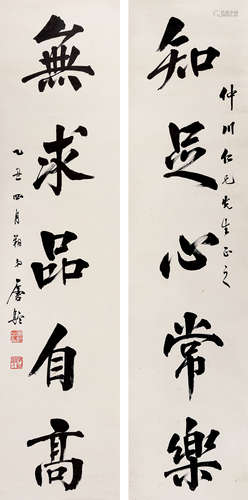 知足心常樂
仲川仁兄先生正之
無求品自高
乙丑四月